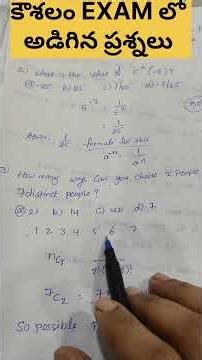 కౌశలం EXAM లో
అడిగిన ప్రశ్నలు
2) what is the value of 5^(-2)?
a) -25 b) 25 c) 1/25 d) -1/25
5⁻² = 1/5²
= 1/25
Answer: 1/25 formula for this
a⁻ⁿ = 1/aⁿ
3) How many ways Can you choose 2 People
7 distinct people?
a) 21 b) 14 c) d) 7
1 2 3 4 5 6 7
nCr =
7C2 = 7
So possible